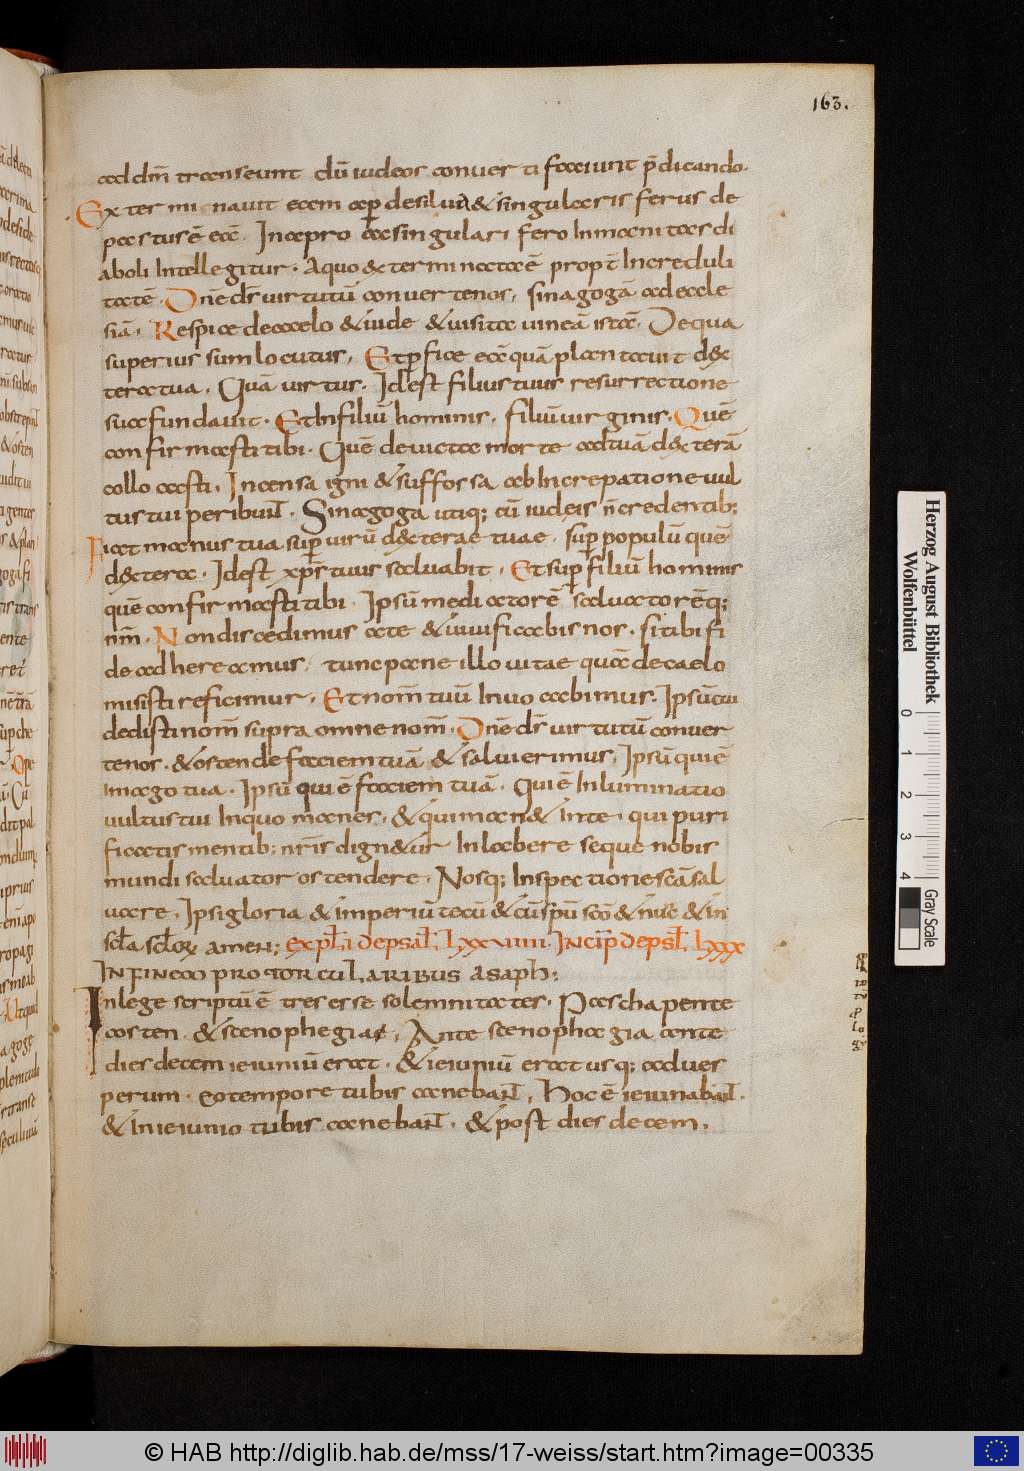 163.
ad dm̄ transeunt dū iudeos conuerti faciunt p̄dicando.
Exterminauit eam aper desilua & singularis ferus de
pastus ē eā. Inapro & singulari fero Inmanitas di
aboli Intellegitur. Aquo exterminata ē propt̄ Increduli
tatē. Dn̄e dr̄ uirtutū conuertenos, sinagogā adeccle
siā. Respice decaelo & uide & uisita uineā istā. Dequa
superius sum locutus. Et perfice eā quā plantauit dex
tera tua. Quā uirtus. Idest filius tuus resurrectione
sua fundauit. Et In filiū hominis, filiū uirginis. Quē
confirmasti tibi. Quē deuicta morte ad tuā dexterā
collocasti, Incensa igni & suffossa ab Increpatione uul
tus tui peribunt. Sinagoga utiq; cū iudeis n̄ credentib;
Fiat manus tua super uirū dexterae tuae, super populū quē
dextera. Idest xp̄s tuus saluabit, Et super filiū hominis
quē confirmasti tibi. Ipsū mediatorē saluatorēq;
nr̄m. Non discedimus a te & uiuificabis nos. si tibi fi
de adhereamus, tunc pane illo uitae quā decaelo
misisti reficimur, Et nom̄ tuū Inuocabimus. Ipsū cui
dedisti nom̄ supra omne nom̄. Dn̄e dr̄ uirtutū conuer
tenos. & ostende faciem tuā & salui erimus, Ipsū qui ē
imago tua. Ipsū qui ē faciem tuā. Qui ē Inluminatio
uultus tui Inquo manes, & qui man& Inte, qui puri
ficatis mentib; nr̄is dign&ur Inlabere seque nobis
mundi saluator ostendere. Nosq; Inspectione scā sal
uare, Ipsi gloria & imperiū tecū & cū sp̄u sc̄o & nunc & in
sc̄la sc̄loꝝ amen; expl̄ t̄ depsal̄. Lxxuiiii. Incip̄ depsl̄. Lxxx
IN FINEM PRO TORCULARIBUS ASAPH:
Inlege scriptū ē tres esse solemnitates. Pascha pente
costen. & scenophegiae, Ante scenophagia ante
dies decem ieiuniū erat. & ieiuniū erat usq; adues
perum. eotempore tubis canebant, Hoc ē ieiunabant.
& in ieiunio tubis canebant. & post dies decem.
Herzog August Bibliothek
Wolfenbüttel
0 1 2 3 4
Gray Scale
© HAB http://diglib.hab.de/mss/17-weiss/start.htm?image=00335